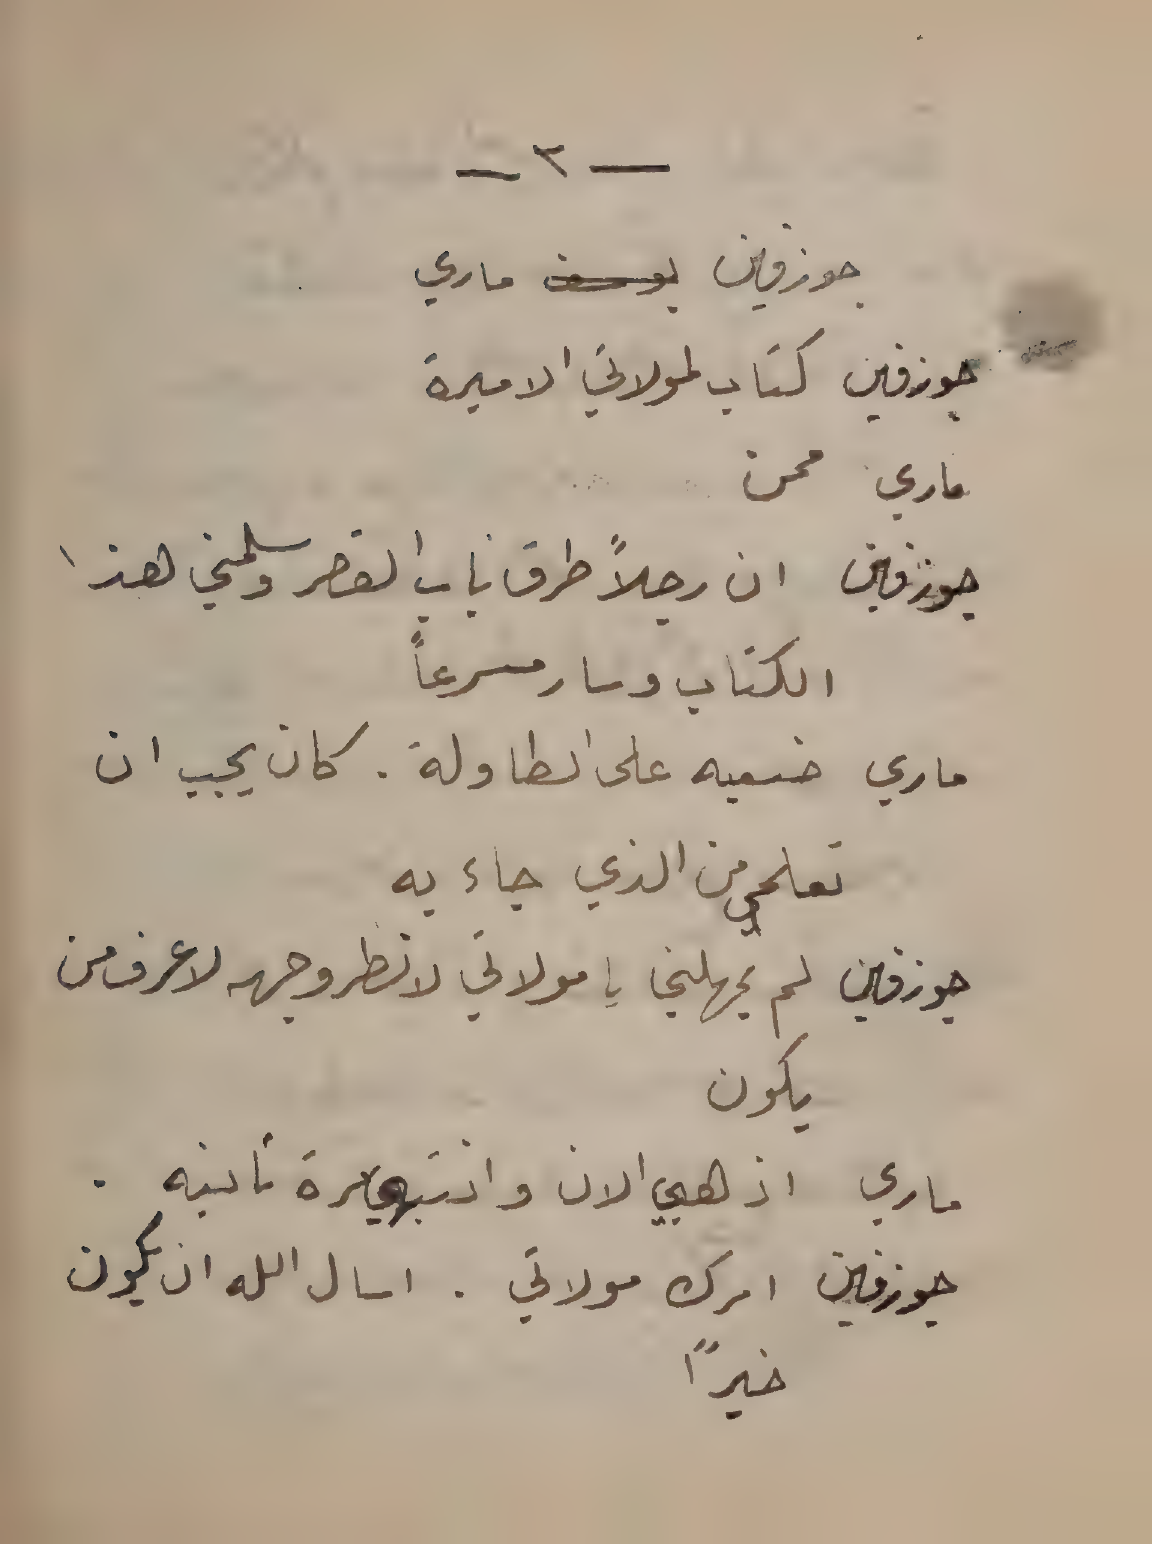 — ٣ —
جوزفين يوسف ماري
جوزفين كتاب لمولاتي الاميرة
ماري ممن
جوزفين ان رجلاً طرق باب القصر وسلمني هذا
الكتاب وسار مسرعاً
ماري ضعيه على الطاولة . كان يجب ان
تعلمي من الذي جاء به
جوزفين لم يمهلني يا مولاتي لانظر وجهه لاعرف من
يكون
ماري اذهبي الان وانتبهي مرة ثانيه .
جوزفين امرك مولاتي . اسال الله ان يكون
خيراً